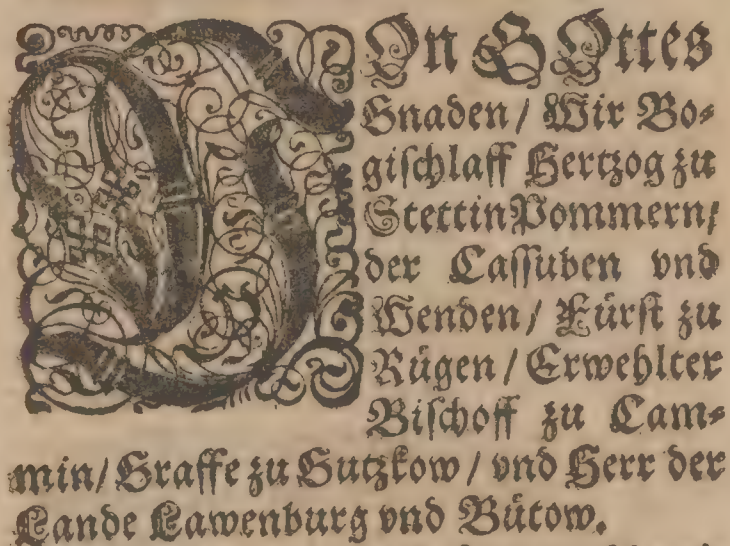 VOn GOttes
Gnaden/ Wir Bo⸗
giſchlaff Hertzog zu
Stettin Pommern/
der Caſſuben vnd
Wenden/ Fürſt zu
Rügen/ Erwehlter
Biſchoff zu Cam⸗
min/ Graffe zu Gutzkow/ vnd Herr der
Lande Lawenburg vnd Bütow.